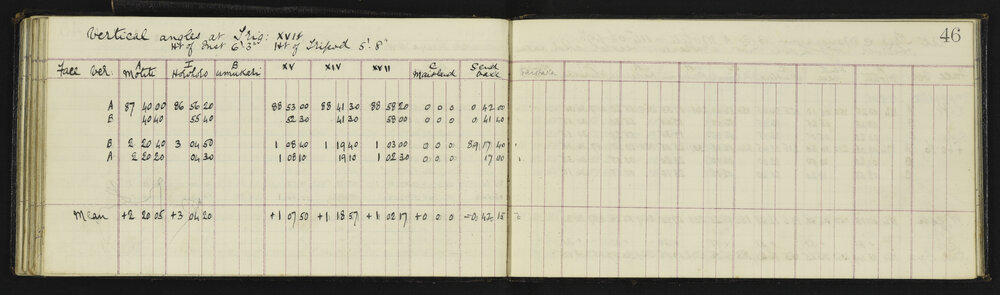 Vertical angles at Trig: XVIII
Ht of Inst 6' 3" Ht of Tripod 5' 8"
46
A I B XV XIV XVII C Send
Face Ver. Motiti Horohoro Umukuri Mainland back
A 87 40 00 86 56 20 88 53 00 88 41 30 88 58 20 0 0 0 0 42 00
B 40 40 55 40 52 30 41 30 58 00 0 0 0 0 41 40
B 2 20 40 3 04 50 1 08 40 1 19 40 1 03 00 0 0 0 89 17 40
A 2 20 20 04 30 1 08 10 19 10 1 02 30 0 0 0 17 00
Mean +2 20 05 +3 04 20 +1 07 50 +1 18 57 +1 02 17 +0 0 0 -0 42 15